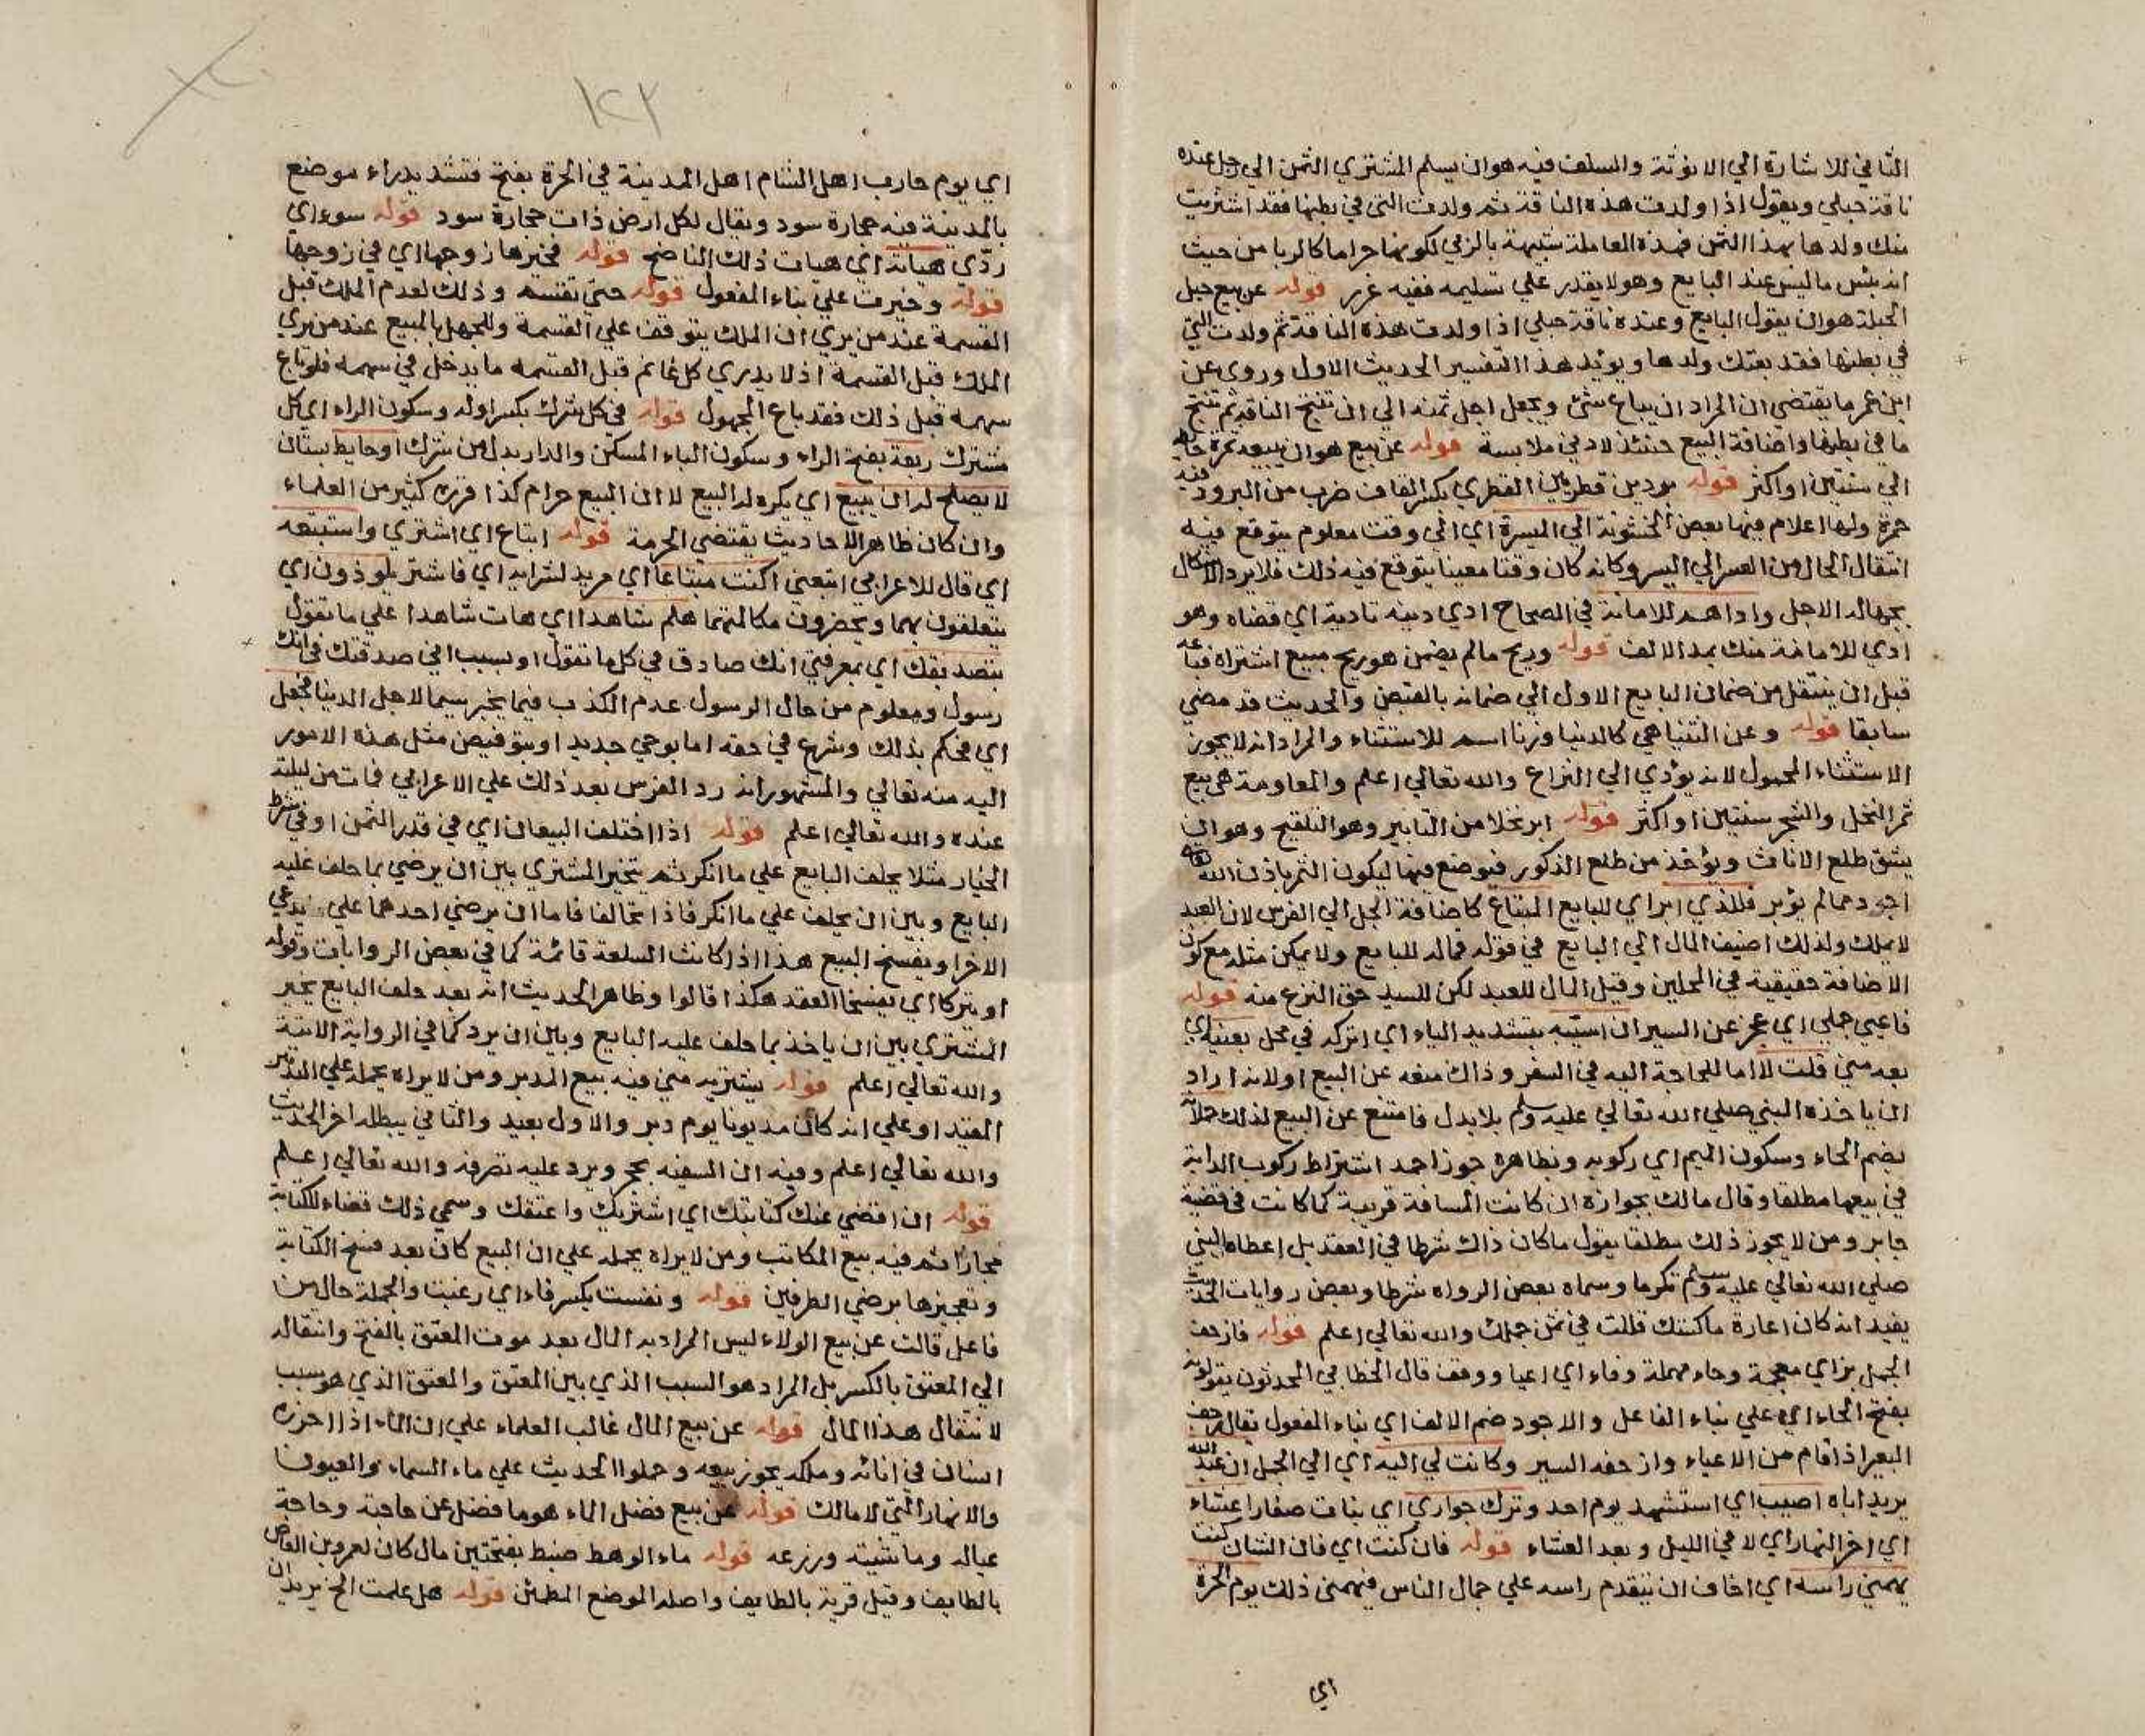 الثاني للاشارة الي الانوثة والسلف فيه هو ان يسلم المشتري الثمن الي رجل عنده
ناقة حبلي ويقول اذا ولدت هذه الناقة ثم ولدت التي في بطنها فقد اشتريت
منك ولدها بهذا الثمن فهذه المعاملة شبيهة بالربي لكونها حراما كالربا من حيث
انه بيع ما ليس عند البايع وهو لا يقدر علي تسليمه ففيه غرر قوله عن بيع حبل
الحبلة هو ان يقول البايع وعنده ناقة حبلي اذا ولدت هذه الناقة ثم ولدت التي
في بطنها فقد بعتك ولدها ويويد هذا التفسير الحديث الاول وروي عن
ابن عمر ما يقتضي ان المراد ان يباع شئ ويجعل اجل ثمنه الي ان تنتج الناقة ثم تنتج
ما في بطنها واضافة البيع حينئذ لادني ملابسة قوله عن بيع هو ان يبيعه ثمرة حايطه
الي سنتين او اكثر قوله بردين قطريين القطري بكسر القاف ضرب من البرود فيه
حمرة ولها اعلام فيها بعض الخشونة الي الميسرة اي الي وقت معلوم يتوقع فيه
انتقال الحال من العسر الي اليسر وكانه كان وقتا معينا يتوقع فيه ذلك فلا يرد الاشكال
بجهالة الاجل واداهم للامانة في الصحاح ادي دينه تادية اي قضاه وهو
ادي للامانة منك بمد الالف قوله وربح مالم يضمن هو ربح مبيع اشتراه فباعه
قبل ان ينتقل من ضمان البايع الاول الي ضمانه بالقبض والحديث قد مضي
سابقا قوله وعن الثنيا هي كالدنيا وزنا اسم للاستثناء والمراد انه لا يجوز
الاستثناء المجهول لانه يودي الي النزاع والله تعالي اعلم والمعاومة هي بيع
ثمر النخل والشجر سنتين او اكثر قوله ابر نخلا من التابير وهو التلقيح وهو ان
يشق طلع الاناث ويوخذ من طلع الذكور فيوضع فيها ليكون الثمر باذن الله تعالي
اجود مما لم يوبر فللذي ابر اي للبايع المبتاع كاضافة الجل الي الفرس لان العبد
لا يملك ولذلك اضيف المال الي البايع في قوله فماله للبايع ولا يمكن مثله مع كون
الاضافة حقيقية في المحلين وقيل المال للعبد لكن للسيد حق النزع منه قوله
فاعيي جملي اي عجز عن السير ان اسيبه بتشديد الياء اي اتركه في محل بعنيه اي
بعه مني قلت لا اما للحاجة اليه في السفر وذاك منعه عن البيع او لانه اراد
ان ياخذه النبي صلي الله تعالي عليه وسلم بلا بدل فامتنع عن البيع لذلك حملانه
بضم الحاء وسكون الميم اي ركوبه وبظاهره جوز احمد اشتراط ركوب الدابة
في بيعها مطلقا وقال مالك بجوازه ان كانت المسافة قريبة كما كانت في قضية
جابر ومن لا يجوز ذلك مطلقا يقول ما كان ذاك شرطا في العقد بل اعطاه النبي
صلي الله تعالي عليه وسلم تكرما وسماه بعض الرواه شرطا وبعض روايات الحديث
يفيد انه كان اعارة ماكستك قللت في ثمن جملك والله تعالي اعلم قوله فازحف
الجمل بزاي معجمة وحاء مهملة وفاء اي اعيا ووقف قال الخطابي المحدثون يقولونه
بفتح الحاء اي علي بناء الفاعل والاجود ضم الالف اي بناء المفعول يقال زحف
البعير اذا قام من الاعياء وازحفه السير وكانت لي اليه اي الي الجمل ان عبد الله
يريد اباه اصيب اي استشهد يوم احد وترك جواري اي بنات صغارا عشاء
اي اخر النهار اي لا في الليل وبعد العشاء قوله فان كنت اي فان الشان كنت
يهمني راسه اي اخاف ان يتقدم راسه علي جمال الناس فيهمني ذلك يوم الحرة
اي
١٤٢
اي يوم حارب اهل الشام اهل المدينة في الحرة بفتح فتشديد راء موضع
بالمدينة فيه حجارة سود ويقال لكل ارض ذات حجارة سود قوله سوء اي
ردي هيات اي هيات ذلك الناضح قوله فخيرها زوجها اي في زوجها
قوله وخيرت علي بناء المفعول قوله حتي تقسم وذلك لعدم الملك قبل
القسمة عند من يري ان الملك يتوقف علي القسمة وللجهل بالمبيع عند من يري
الملك قبل القسمة اذ لا يدري كل غانم قبل القسمة ما يدخل في سهمه فلو باع
سهمه قبل ذلك فقد باع المجهول قوله في كل شرك بكسر اوله وسكون الراء اي كل
مشترك ربعة بفتح الراء وسكون الباء المسكن والدار بدل من شرك او حايط بستان
لا يصلح له ان يبيع اي يكره له البيع لا ان البيع حرام كذا قرره كثير من العلماء
وان كان ظاهر الاحاديث يقتضي الحرمة قوله ابتاع اي اشتري واستتبعه
اي قال للاعرابي اتبعني اكنت مبتاعا اي مريد لشرايه اي فاشتر يلوذون اي
يتعلقون بهما ويحضرون مكالمتهما هلم شاهدا اي هات شاهدا علي ما تقول
بتصديقك اي بمعرفتي انك صادق في كل ما تقول او بسبب اني صدقتك في انك
رسول ومعلوم من حال الرسول عدم الكذب فيما يخبر سيما لاجل الدنيا فجعل
اي فحكم بذلك وشرع في حقه اما بوحي جديد او بتوفيض مثل هذه الامور
اليه منه تعالي والمشهور انه رد الفرس بعد ذلك علي الاعرابي فمات من ليلته
عنده والله تعالي اعلم قوله اذا اختلف البيعان اي في قدر الثمن او في شرط
الخيار مثلا يحلف البايع علي ما انكر ثم يتخير المشتري بين ان يرضي بما حلف عليه
البايع وبين ان يحلف علي ما انكر فاذا تحالفا فاما ان يرضي احدهما علي يدعي
الاخر او يفسخ البيع هذا اذا كانت السلعة قائمة كما في بعض الروايات وقوله
او يتركا اي يفسخا العقد هكذا قالوا وظاهر الحديث انه بعد حلف البايع يخير
المشتري بين ان ياخذ بما حلف عليه البايع وبين ان يرد كما في الرواية الاتية
والله تعالي اعلم قوله يشتريه مني فيه بيع المدبر ومن لا يراه يحمله علي التدبير
المقيد او علي انه كان مديونا يوم دبر والاول بعيد والثاني يبطله اخر الحديث
والله تعالي اعلم وفيه ان السفيه يحجر ويرد عليه تصرفه والله تعالي اعلم
قوله ان اقضي عنك كتابتك اي اشتريك واعتقك وسمي ذلك قضاء للكتابة
مجازا ثم فيه بيع المكاتب ومن لا يراه يحمله علي ان البيع كان بعد فسخ الكتابة
وتعجيزها برضي الطرفين قوله ونفست بكسر فاء اي رغبت والجملة حال من
فاعل قالت عن بيع الولاء ليس المراد به المال بعد موت المعتق بالفتح وانتقاله
الي المعتق بالكسر بل المراد هو السبب الذي بين المعتق والمعتق الذي هو سبب
لانتقال هذا المال قوله عن بيع المال غالب العلماء علي ان الماء اذا احرزه
انسان في انائه وملكه يجوز بيعه وحملوا الحديث علي ماء السماء والعيون
والانهار التي لا مالك قوله عن بيع فضل الماء هو ما فضل عن حاجته وحاجة
عياله وماشيته وزرعه قوله ماء الوهط ضبط بفتحتين مال كان لعمرو بن العاص
بالطايف وقيل قرية بالطايف واصله الموضع المطمئن قوله هل علمت الخ يريد ان